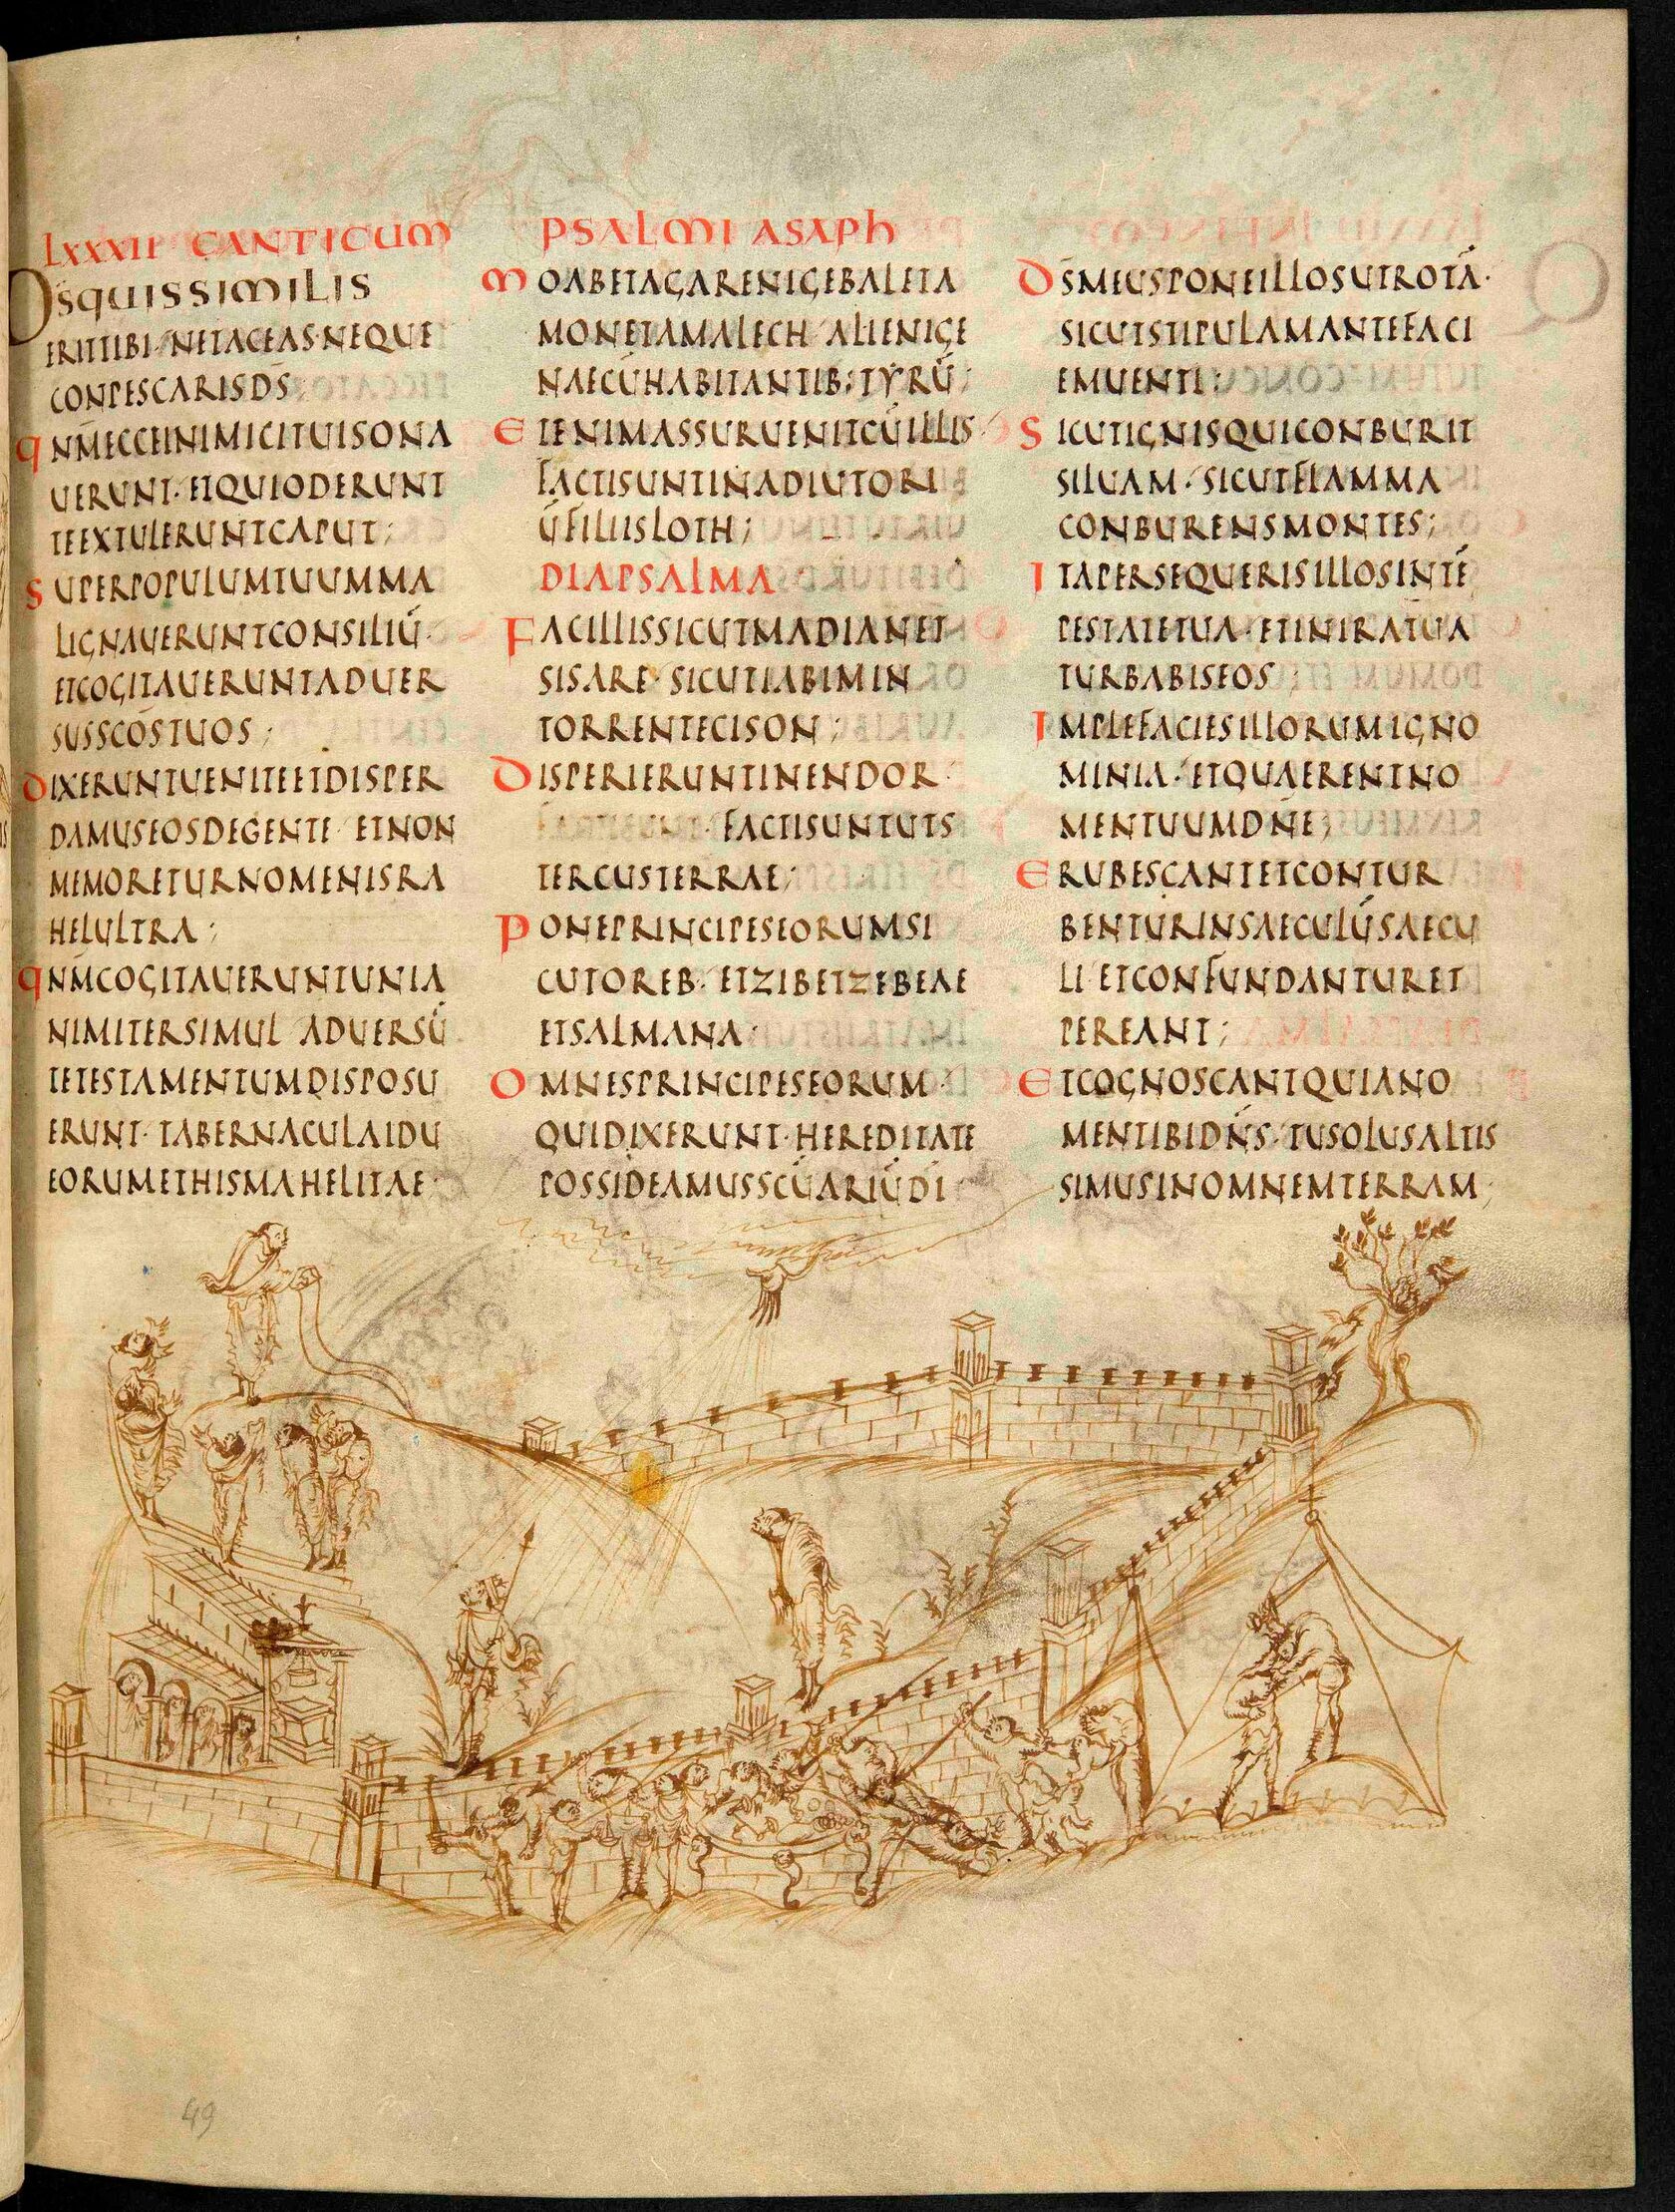 LXXXII CANTICUM PSALMI ASAPH
DS̄QUISSIMILIS
ERITTIBI·NETACEAS·NEQUE
CONPESCARISDS̄;
QNM̄ECCEINIMICITUISONA
UERUNT·ETQUIODERUNT
TEEXTULERUNTCAPUT;
SUPERPOPULUMTUUMMA
LIGNAUERUNTCONSILIŪ·
ETCOGITAUERUNTADUER
SUSSCŌSTUOS;
DIXERUNTUENITEETDISPER
DAMUSEOSDEGENTE·ETNON
MEMORETURNOMENISRA
HELULTRA;
QNM̄COGITAUERUNTUNIA
NIMITERSIMUL ADUERSŪ
TETESTAMENTUMDISPOSU
ERUNT·TABERNACULAIDU
EORUMETHISMAHELITAE·
MOABETAGARENIGEBALETA
MONETAMALECH ALIENIGE
NAECŪHABITANTIB;TYRŪ;
ETENIMASSURUENITCŪILLIS
FACTISUNTINADIUTORI
ŪFILIISLOTH;
DIAPSALMA
FACILLISSICUTMADIANET
SISARE·SICUTIABIMIN
TORRENTECISON;
DISPERIERUNTINENDOR·
FACTISUNTUTS
TERCUSTERRAE;
PONEPRINCIPESEORUMSI
CUTOREB·ETZIBETZEBEAE
ETSALMANA;
OMNESPRINCIPESEORUM·
QUIDIXERUNT·HEREDITATE
POSSIDEAMUSSCŪARIŪDĪ
DS̄MEUSPONEILLOSUTROTĀ·
SICUTSTIPULAMANTEFACI
EMUENTI;
SICUTIGNISQUICONBURIT
SILUAM·SICUTFLAMMA
CONBURENSMONTES;
ITAPERSEQUERISILLOSINTĒ
PESTATETUA·ETINIRATUA
TURBABISEOS;
IMPLEFACIESILLORUMIGNO
MINIA·ETQUAERENTNO
MENTUUMDN̄E;
ERUBESCANTETCONTUR
BENTURINSAECULŪSAECU
LI·ETCONFUNDANTURET
PEREANT;
ETCOGNOSCANTQUIANO
MENTIBIDN̄S·TUSOLUSALTIS
SIMUSINOMNEMTERRAM;
49